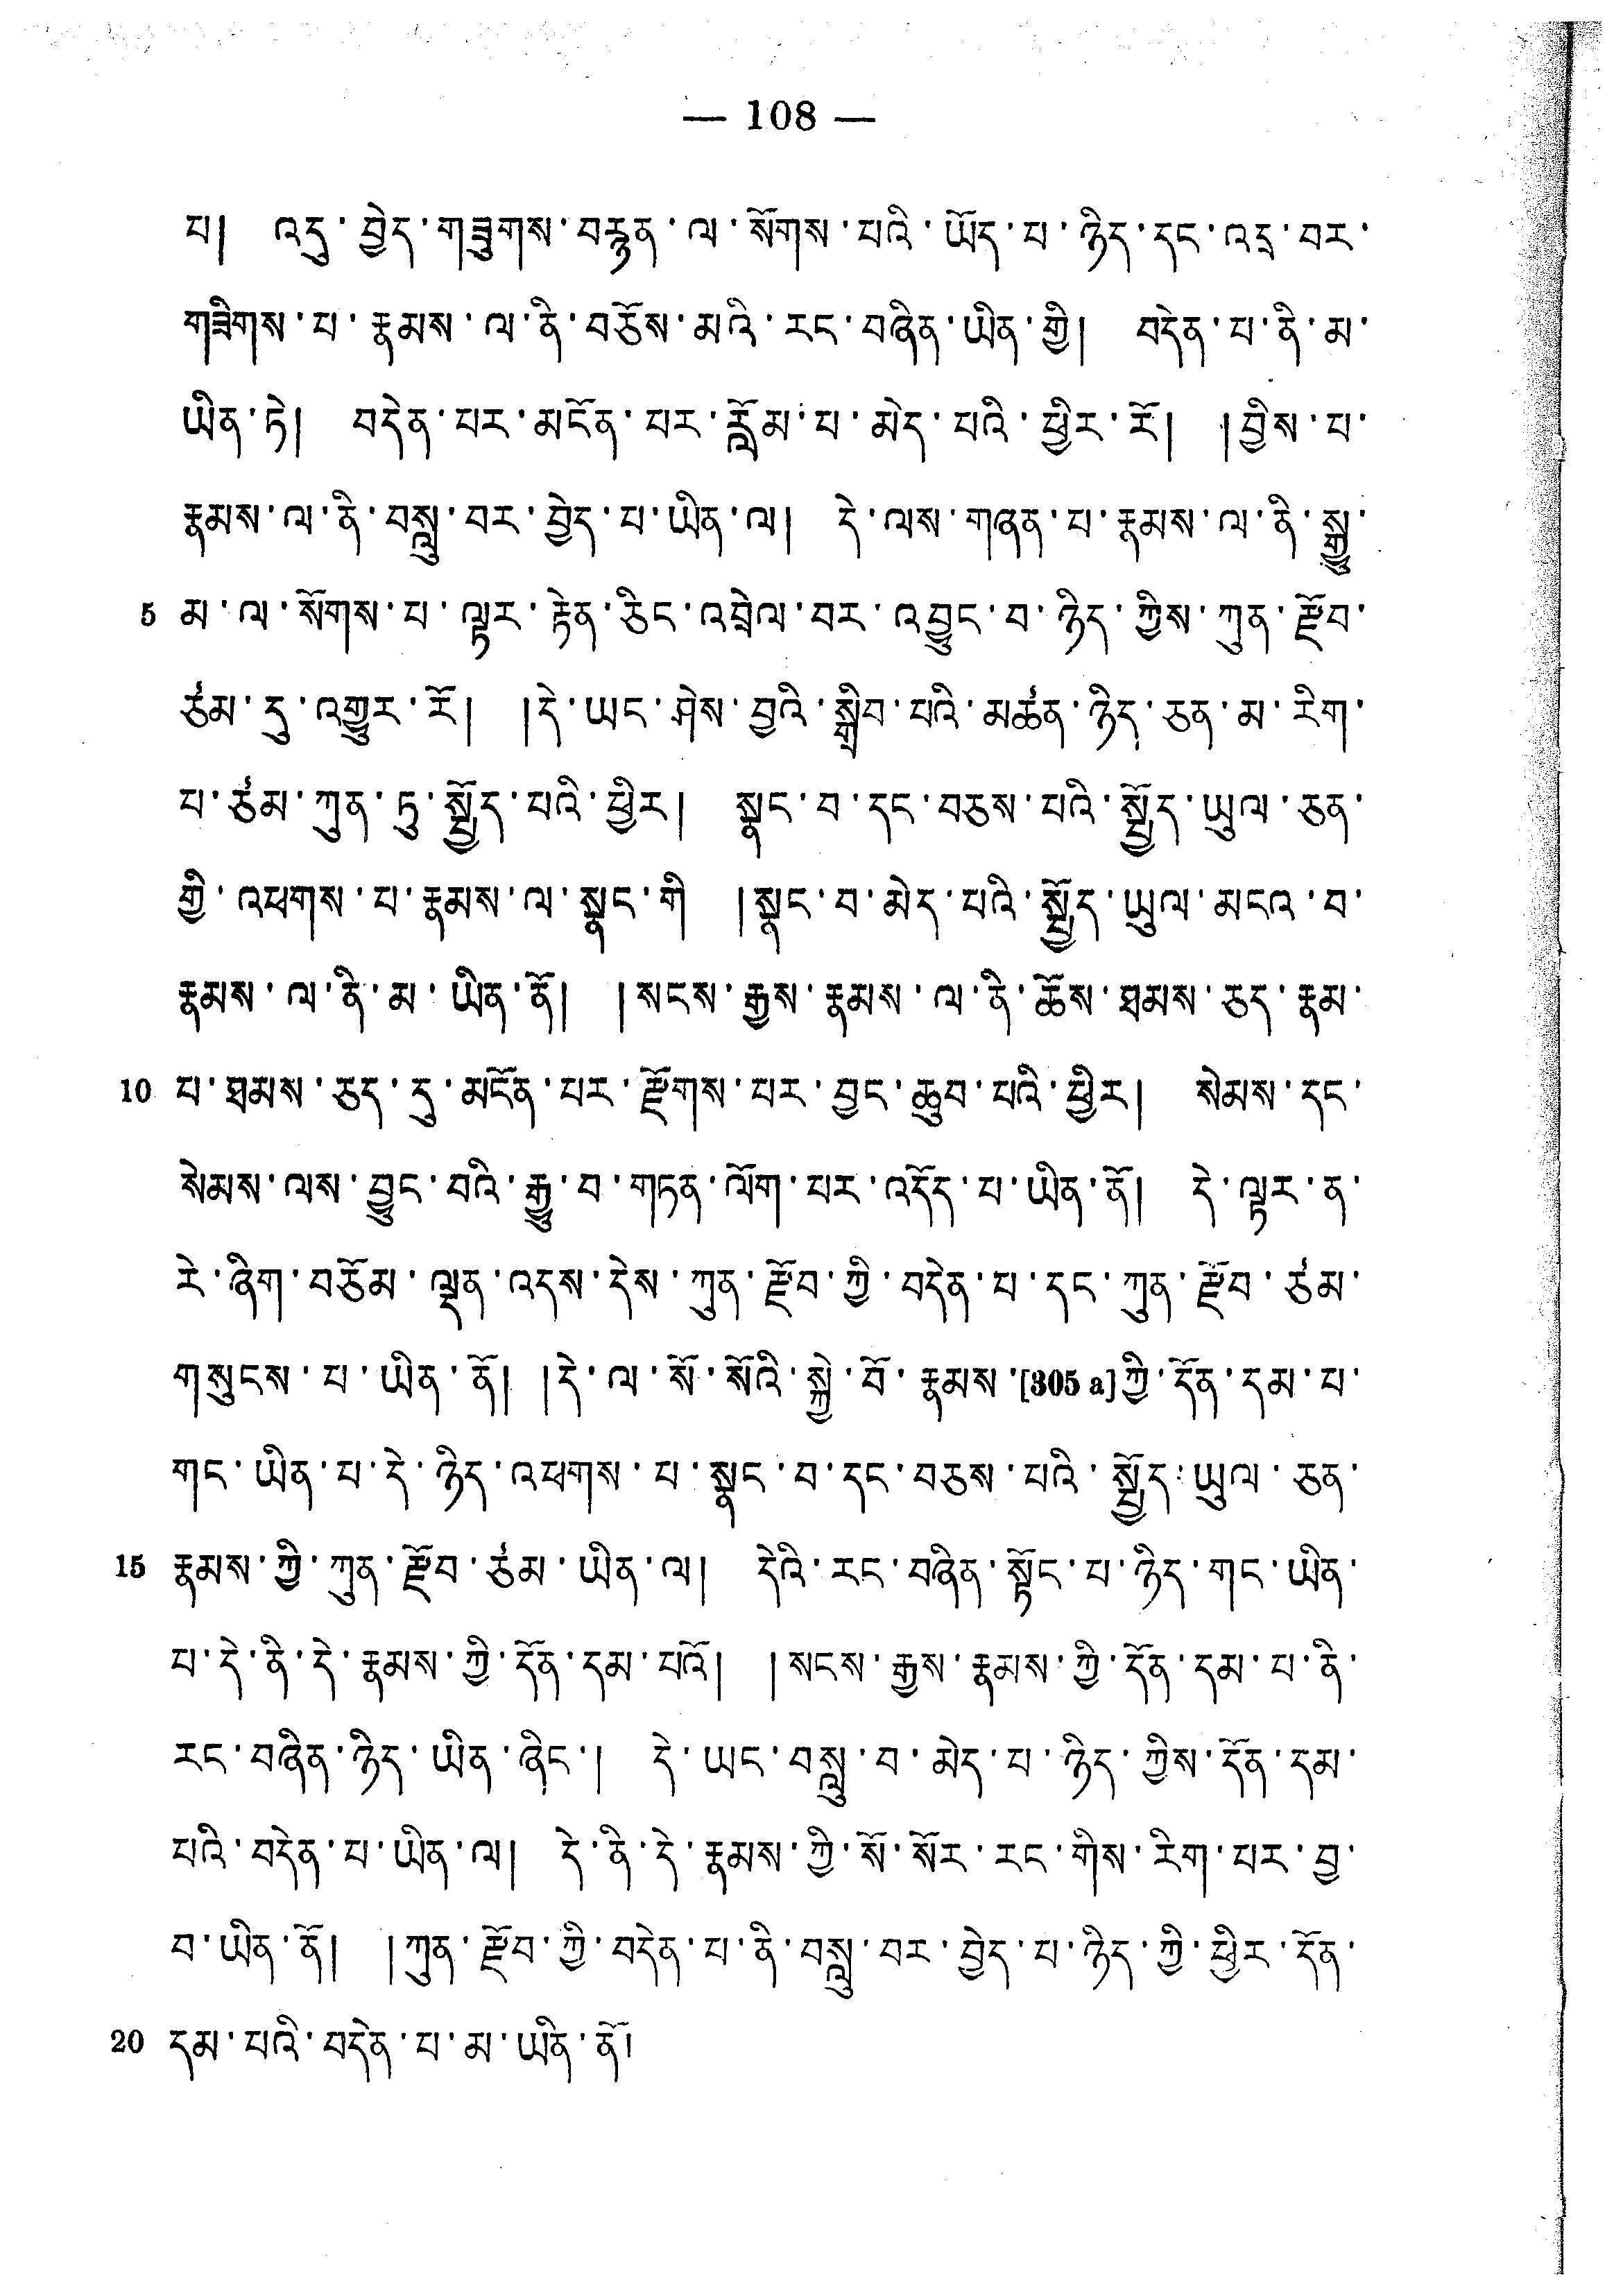 — 108 —
པ།  འདུ་བྱེད་གཟུགས་བརྙན་ལ་སོགས་པའི་ཡོད་པ་ཉིད་དང་འདྲ་བར་
གཟིགས་པ་རྣམས་ལ་ནི་བཅོས་མའི་རང་བཞིན་ཡིན་གྱི།  བདེན་པ་ནི་མ་
ཡིན་ཏེ།  བདེན་པར་མངོན་པར་རློམ་པ་མེད་པའི་ཕྱིར་རོ།  །བྱིས་པ་
རྣམས་ལ་ནི་བསླུ་བར་བྱེད་པ་ཡིན་ལ།  དེ་ལས་གཞན་པ་རྣམས་ལ་ནི་སྒྱུ་
5 མ་ལ་སོགས་པ་ལྟར་རྟེན་ཅིང་འབྲེལ་བར་འབྱུང་བ་ཉིད་ཀྱིས་ཀུན་རྫོབ་
ཙམ་དུ་འགྱུར་རོ།  །དེ་ཡང་ཤེས་བྱའི་སྒྲིབ་པའི་མཚན་ཉིད་ཅན་མ་རིག་
པ་ཙམ་ཀུན་ཏུ་སྤྱོད་པའི་ཕྱིར།  སྣང་བ་དང་བཅས་པའི་སྤྱོད་ཡུལ་ཅན་
གྱི་འཕགས་པ་རྣམས་ལ་སྣང་གི  །སྣང་བ་མེད་པའི་སྤྱོད་ཡུལ་མངའ་བ་
རྣམས་ལ་ནི་མ་ཡིན་ནོ།  །སངས་རྒྱས་རྣམས་ལ་ནི་ཆོས་ཐམས་ཅད་རྣམ་
10 པ་ཐམས་ཅད་དུ་མངོན་པར་རྫོགས་པར་བྱང་ཆུབ་པའི་ཕྱིར།  སེམས་དང་
སེམས་ལས་བྱུང་བའི་རྒྱུ་བ་གཏན་ལོག་པར་འདོད་པ་ཡིན་ནོ།  དེ་ལྟར་ན་
རེ་ཞིག་བཅོམ་ལྡན་འདས་དེས་ཀུན་རྫོབ་ཀྱི་བདེན་པ་དང་ཀུན་རྫོབ་ཙམ་
གསུངས་པ་ཡིན་ནོ། །དེ་ལ་སོ་སོའི་སྐྱེ་བོ་རྣམས་[305 a]ཀྱི་དོན་དམ་པ་
གང་ཡིན་པ་དེ་ཉིད་འཕགས་པ་སྣང་བ་དང་བཅས་པའི་སྤྱོད་ཡུལ་ཅན་
15 རྣམས་ཀྱི་ཀུན་རྫོབ་ཙམ་ཡིན་ལ།  དེའི་རང་བཞིན་སྟོང་པ་ཉིད་གང་ཡིན་
པ་དེ་ནི་དེ་རྣམས་ཀྱི་དོན་དམ་པའོ།  །སངས་རྒྱས་རྣམས་ཀྱི་དོན་དམ་པ་ནི་
རང་བཞིན་ཉིད་ཡིན་ཞིང་།  དེ་ཡང་བསླུ་བ་མེད་པ་ཉིད་ཀྱིས་དོན་དམ་
པའི་བདེན་པ་ཡིན་ལ།  དེ་ནི་དེ་རྣམས་ཀྱི་སོ་སོར་རང་གིས་རིག་པར་བྱ་
བ་ཡིན་ནོ།  །ཀུན་རྫོབ་ཀྱི་བདེན་པ་ནི་བསླུ་བར་བྱེད་པ་ཉིད་ཀྱི་ཕྱིར་དོན་
20 དམ་པའི་བདེན་པ་མ་ཡིན་ནོ།